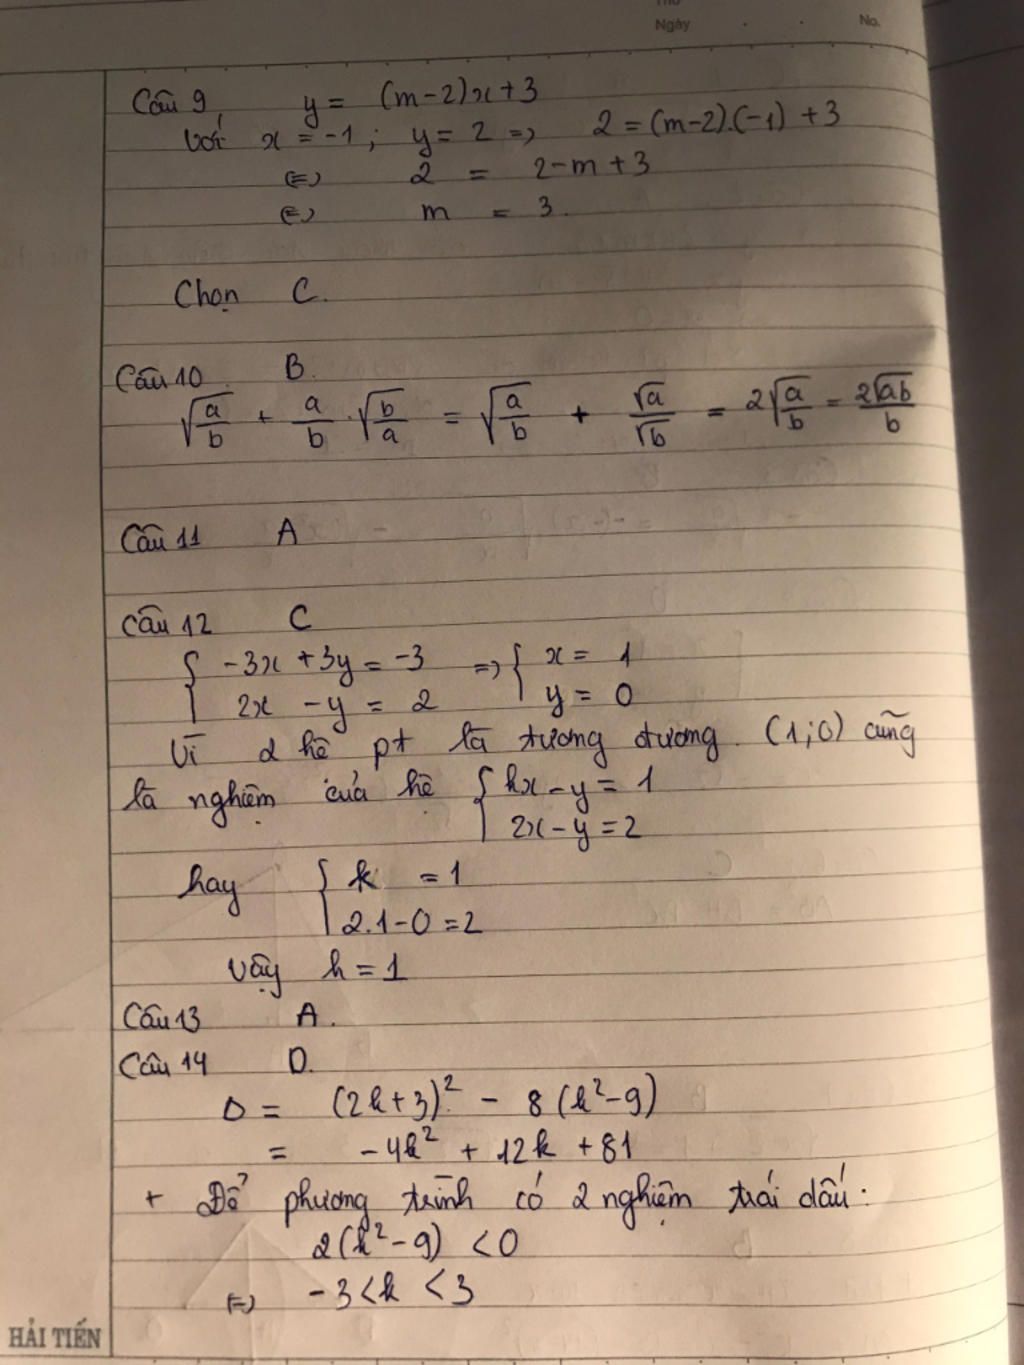 Thứ
Ngày . . No.
Câu 9 y = (m-2)x+3
Với x = -1 ; y = 2 => 2 = (m-2).(-1) + 3
<=> 2 = 2-m+3
<=> m = 3.
Chọn C.
Câu 10 B.
√(a/b) + a/b . √(b/a) = √(a/b) + √a/√b = 2√(a/b) = 2√ab/b
Câu 11 A
Câu 12 C
{ -3x + 3y = -3 => { x = 1
2x - y = 2 y = 0
Vì 2 hệ pt là tương đương. (1;0) cũng
là nghiệm của hệ { kx - y = 1
2x - y = 2
hay { k = 1
2.1-0 = 2
Vậy k = 1
Câu 13 A.
Câu 14 D.
Δ = (2k+3)² - 8(k²-9)
= -4k² + 12k + 81
+ Để phương trình có 2 nghiệm trái dấu:
2(k²-9) < 0
<=> -3 < k < 3
HẢI TIẾN